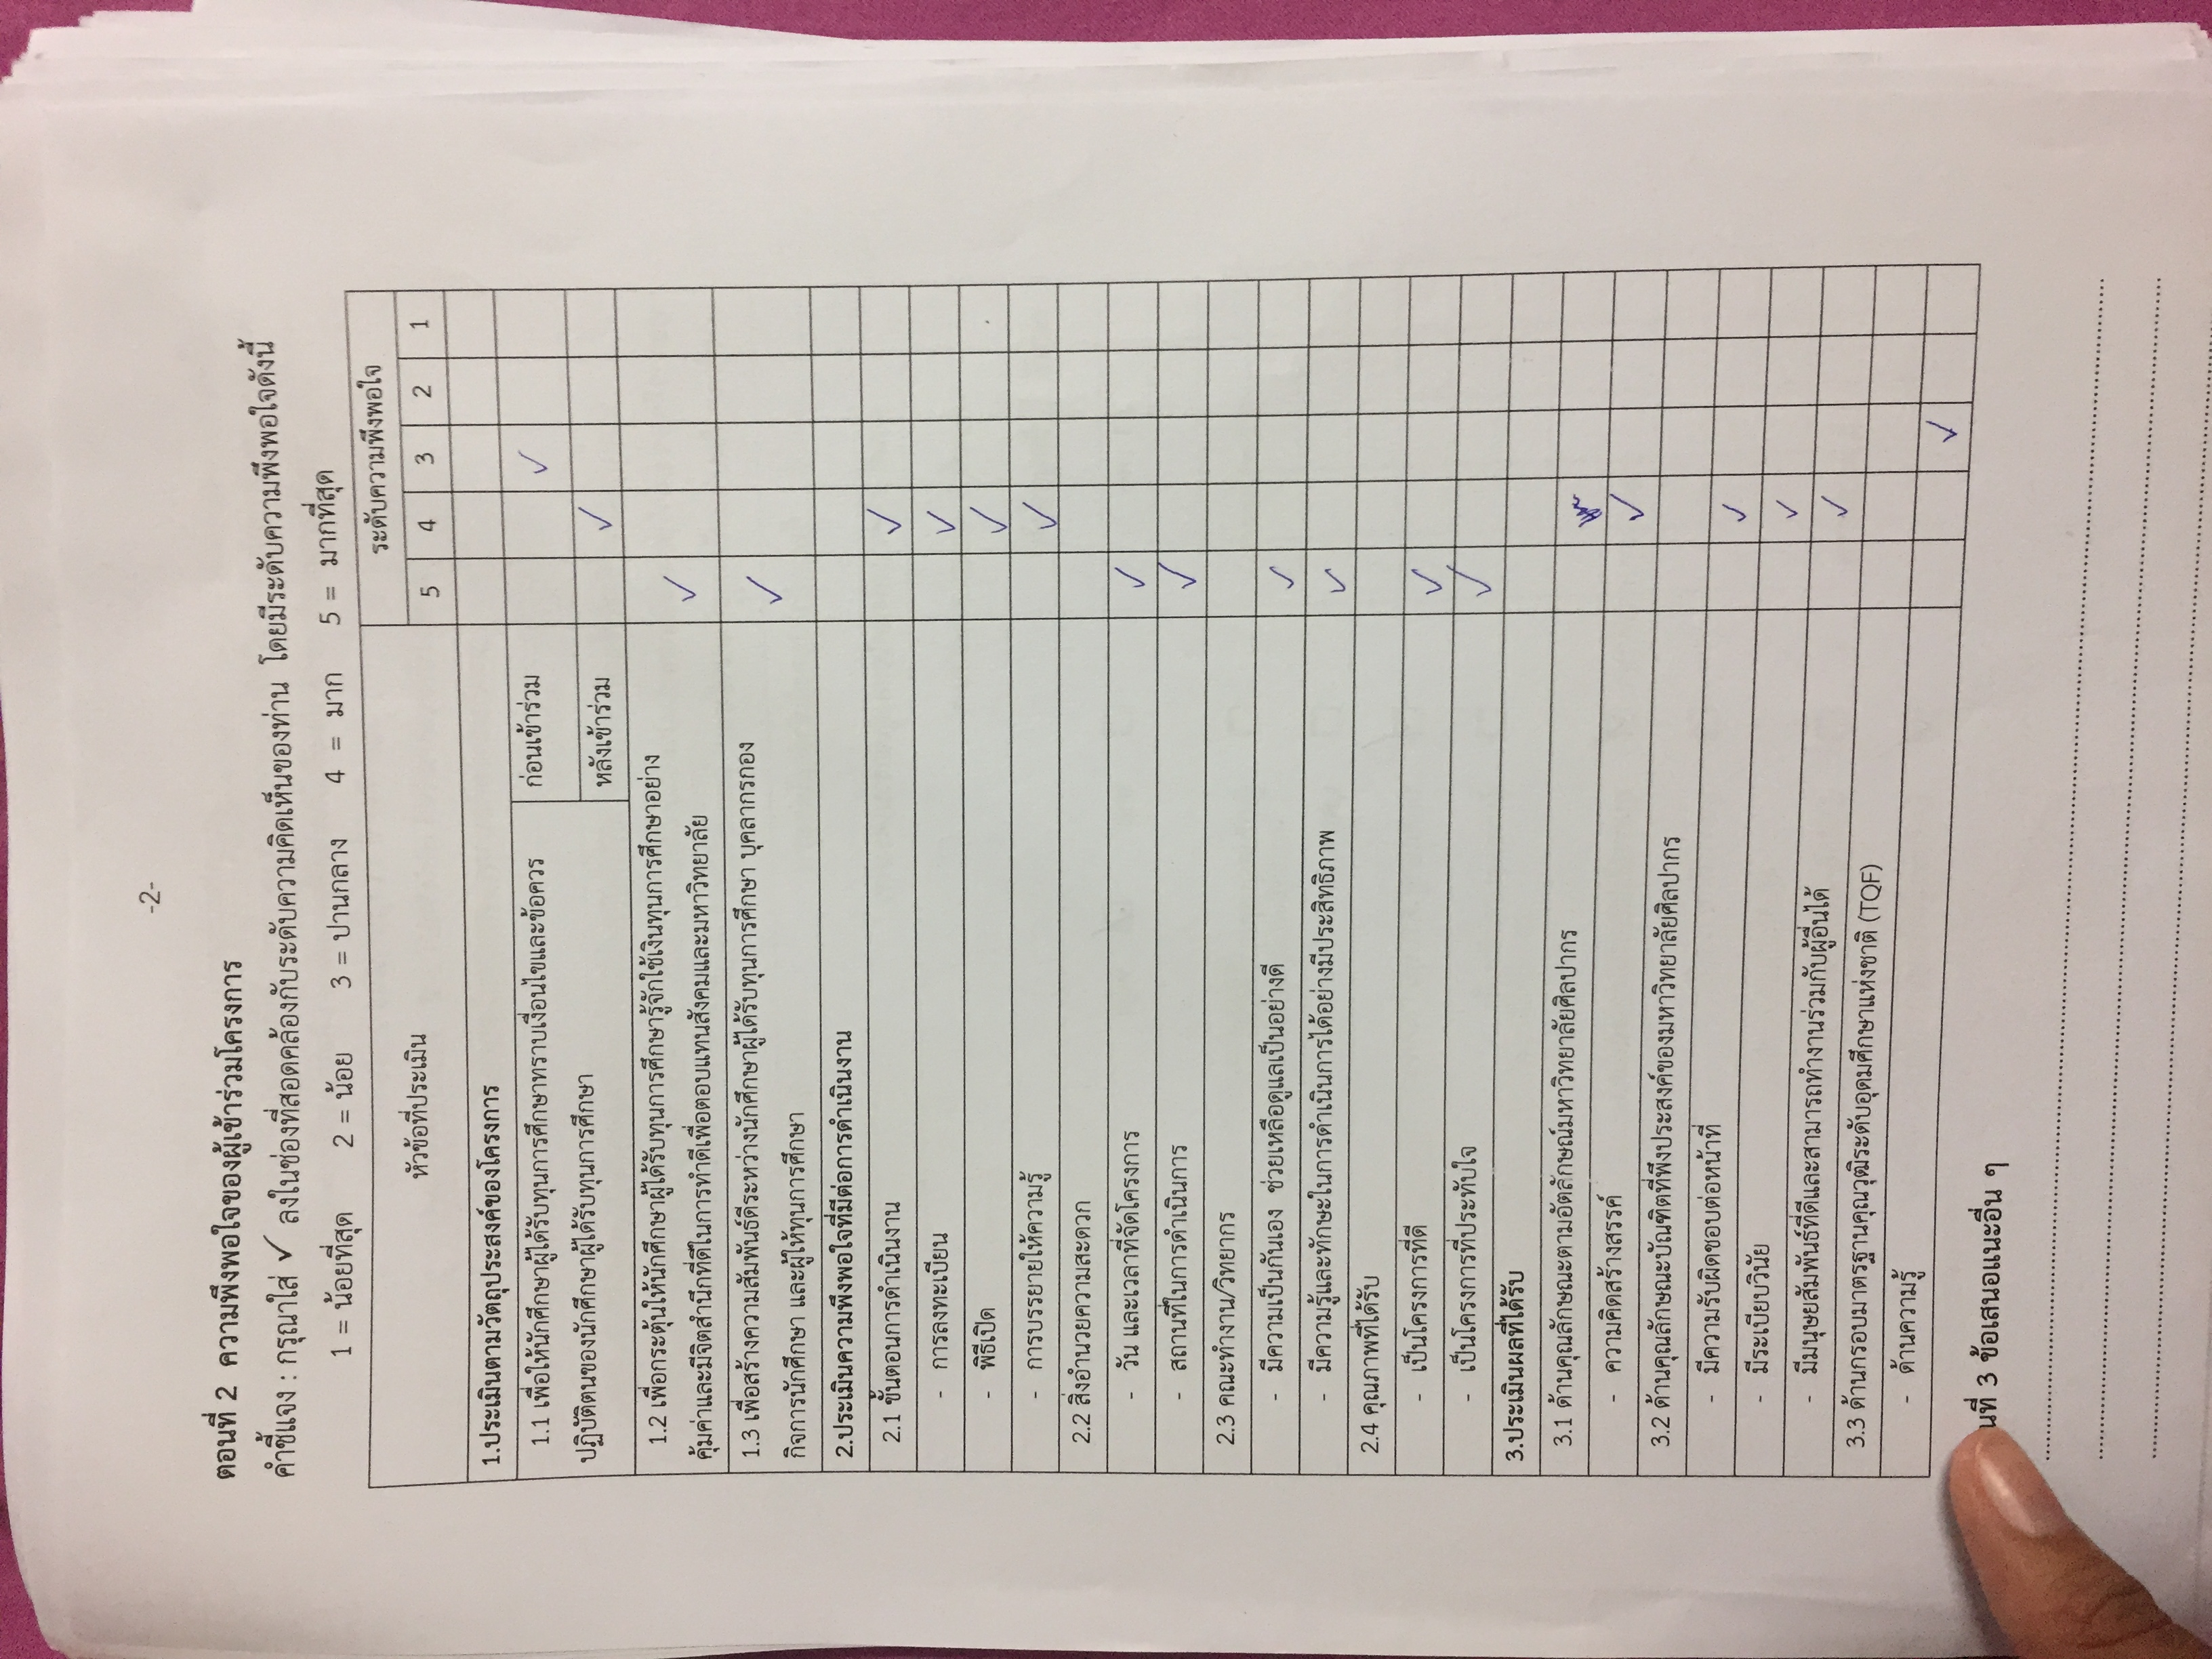 -2-
ตอนที่ 2 ความพึงพอใจของผู้เข้าร่วมโครงการ
คำชี้แจง : กรุณาใส่ ✓ ลงในช่องที่สอดคล้องกับระดับความคิดเห็นของท่าน โดยมีระดับความพึงพอใจดังนี้
1 = น้อยที่สุด 2 = น้อย 3 = ปานกลาง 4 = มาก 5 = มากที่สุด
หัวข้อที่ประเมิน ระดับความพึงพอใจ
5 4 3 2 1
1.ประเมินตามวัตถุประสงค์ของโครงการ
1.1 เพื่อให้นักศึกษาผู้ได้รับทุนการศึกษาทราบเงื่อนไขและข้อควร ก่อนเข้าร่วม ✓
ปฏิบัติตนของนักศึกษาผู้ได้รับทุนการศึกษา หลังเข้าร่วม ✓
1.2 เพื่อกระตุ้นให้นักศึกษาผู้ได้รับทุนการศึกษารู้จักใช้เงินทุนการศึกษาอย่าง
คุ้มค่าและมีจิตสำนึกที่ดีในการทำดีเพื่อตอบแทนสังคมและมหาวิทยาลัย ✓
1.3 เพื่อสร้างความสัมพันธ์ดีระหว่างนักศึกษาผู้ได้รับทุนการศึกษา บุคลากรกอง
กิจการนักศึกษา และผู้ให้ทุนการศึกษา ✓
2.ประเมินความพึงพอใจที่มีต่อการดำเนินงาน
2.1 ขั้นตอนการดำเนินงาน ✓
- การลงทะเบียน ✓
- พิธีเปิด ✓
- การบรรยายให้ความรู้ ✓
2.2 สิ่งอำนวยความสะดวก
- วัน และเวลาที่จัดโครงการ ✓
- สถานที่ในการดำเนินการ ✓
2.3 คณะทำงาน/วิทยากร
- มีความเป็นกันเอง ช่วยเหลือดูแลเป็นอย่างดี ✓
- มีความรู้และทักษะในการดำเนินการได้อย่างมีประสิทธิภาพ ✓
2.4 คุณภาพที่ได้รับ
- เป็นโครงการที่ดี ✓
- เป็นโครงการที่ประทับใจ ✓
3.ประเมินผลที่ได้รับ
3.1 ด้านคุณลักษณะตามอัตลักษณ์มหาวิทยาลัยศิลปากร
- ความคิดสร้างสรรค์ ✓
3.2 ด้านคุณลักษณะบัณฑิตที่พึงประสงค์ของมหาวิทยาลัยศิลปากร
- มีความรับผิดชอบต่อหน้าที่ ✓
- มีระเบียบวินัย ✓
- มีมนุษยสัมพันธ์ที่ดีและสามารถทำงานร่วมกับผู้อื่นได้ ✓
3.3 ด้านกรอบมาตรฐานคุณวุฒิระดับอุดมศึกษาแห่งชาติ (TQF)
- ด้านความรู้ ✓
นที่ 3 ข้อเสนอแนะอื่น ๆ